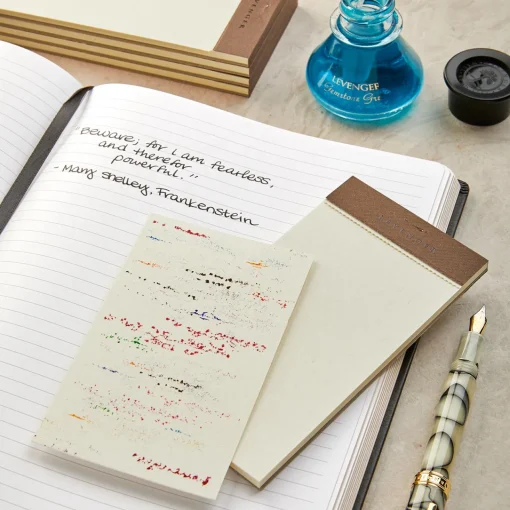 Beware; for I am fearless,
and therefor
powerful."
- Mary Shelley, Frankenstein
LEVENGER
Gemstone Green